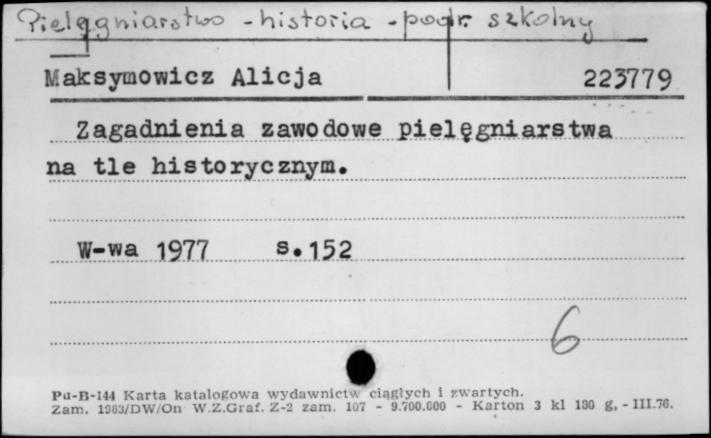 Pielęgniarstwo - historia - podr. szkolny
Maksymowicz Alicja 223779
Zagadnienia zawodowe pielęgniarstwa
na tle historycznym.
W-wa 1977 s.152
6
Pu-B-144 Karta katalogowa wydawnictw ciągłych i zwartych.
Zam. 1963/DW/On W.Z.Graf. Z-2 zam. 107 - 9.700.000 - Karton 3 kl 180 g, - III.76.